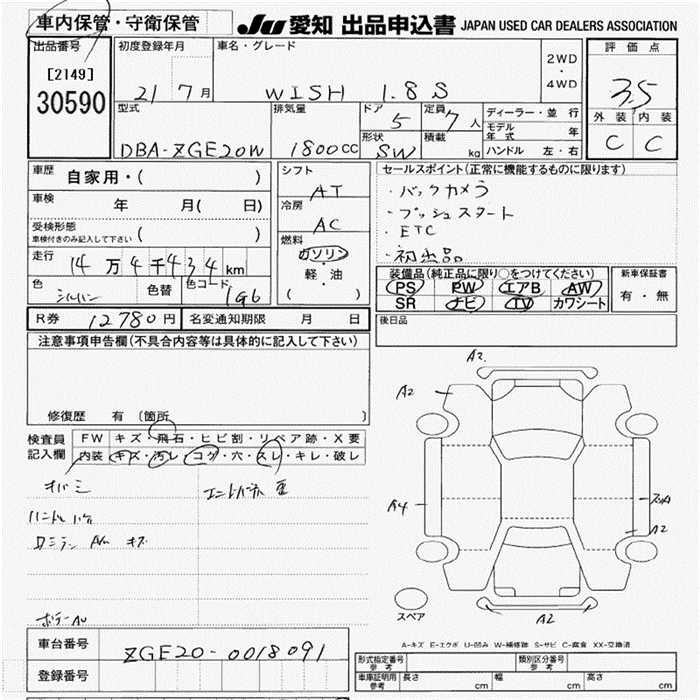 車内保管・守衛保管
JU 愛知 出品申込書 JAPAN USED CAR DEALERS ASSOCIATION
出品番号
[2149]
30590
初度登録年月
21 7月
車名・グレード
WISH 1.8 S
2WD
・
4WD
評価点
3.5
外装 内装
C C
型式
DBA-ZGE20W
排気量
1800CC
ドア
5
形状
SW
定員
7人
積載
kg
ディーラー・並行
モデル年式 年
ハンドル 左・右
車歴 自家用・( )
車検 年 月( 日)
受検形態
車検付きのみ記入して下さい ( )
走行 14万4千434km
色 シルバー 色替 色コード 1G6
シフト
AT
冷房
AC
燃料
ガソリン
・
軽・油
( )
セールスポイント(正常に機能するものに限ります)
・バックカメラ
・プッシュスタート
・ETC
・初出品
装備品(純正品に限り○をつけてください)
PS PW エアB AW
SR ナビ TV カワシート
新車保証書
有・無
R券 12780円 名変通知期限 月 日
後日品
注意事項申告欄(不具合内容等は具体的に記入して下さい)
修復歴 有(箇所 )
検査員
記入欄
FW キズ・飛石・ヒビ割・リペア跡・X要
内装 キズ・汚レ・コゲ・穴・スレ・キレ・破レ
A2
A2
A4
A2
A2
スペア
A-キズ E-エクボ U-凹み W-補修跡 S-サビ C-腐食 XX-交換済
車台番号 ZGE20-0018091
登録番号
形式指定番号
参考
類別区分番号
参考
車庫証明用
参考
長さ cm 幅 cm 高さ cm